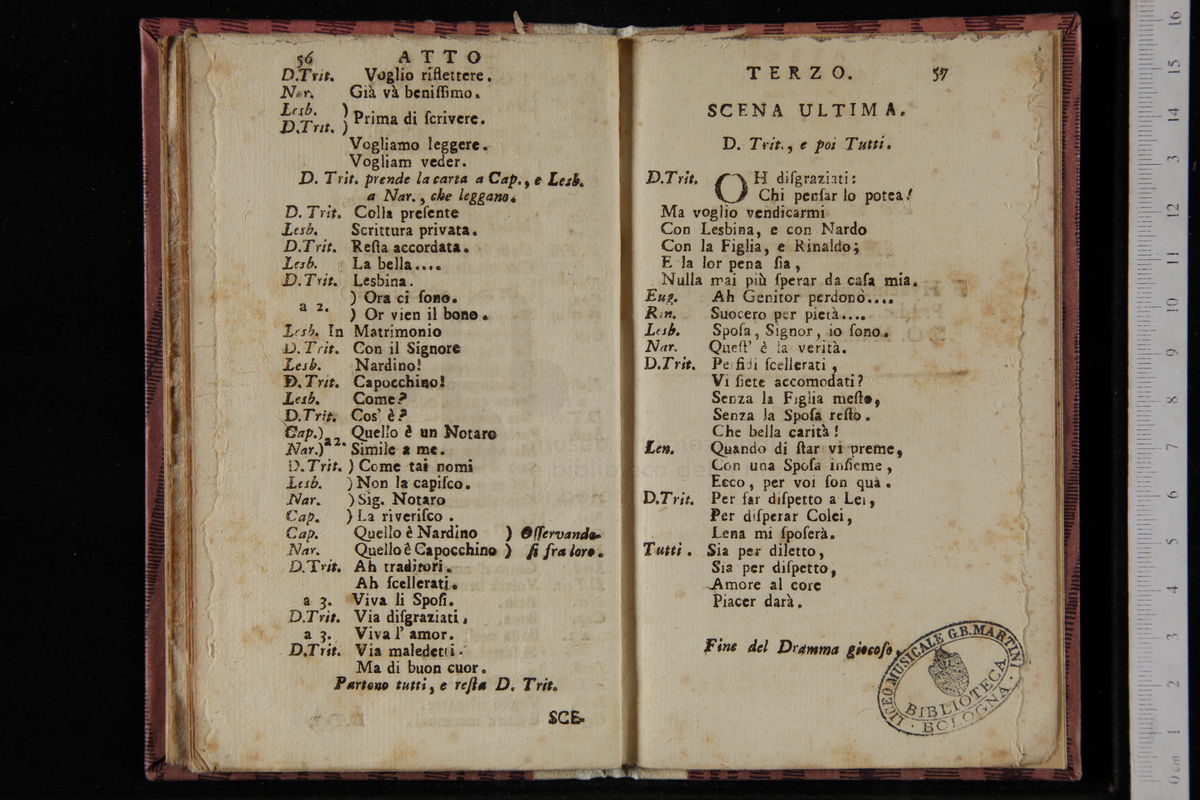 56 ATTO
D.Trit. Voglio riflettere.
Nar. Già và beniſſimo.
Lesb. )
D.Trit. ) Prima di ſcrivere.
Vogliamo leggere.
Vogliam veder.
D. Trit. prende la carta a Cap., e Lesb.
a Nar., che leggano.
D. Trit. Colla preſente
Lesb. Scrittura privata.
D.Trit. Reſta accordata.
Lesb. La bella....
D.Trit. Lesbina.
a 2. ) Ora ci ſono.
) Or vien il bono.
Lesb. In Matrimonio
D.Trit. Con il Signore
Lesb. Nardino!
D.Trit. Capocchino!
Lesb. Come?
D.Trit. Cos' è?
Cap.) a2. Quello è un Notaro
Nar.) Simile a me.
D.Trit. ) Come tai nomi
Lesb. ) Non la capiſco.
Nar. ) Sig. Notaro
Cap. ) La riveriſco .
Cap. Quello è Nardino ) Oſſervando-
Nar. Quello è Capocchino ) ſi fra loro.
D.Trit. Ah traditori.
Ah ſcellerati.
a 3. Viva li Spoſi.
D.Trit. Via diſgraziati,
a 3. Viva l' amor.
D.Trit. Via maledetti.
Ma di buon cuor.
Partono tutti, e reſta D. Trit.
SCE-
TERZO. 57
SCENA ULTIMA.
D. Trit., e poi Tutti.
D.Trit. OH diſgraziati:
Chi penſar lo potea!
Ma voglio vendicarmi
Con Lesbina, e con Nardo
Con la Figlia, e Rinaldo;
E la lor pena ſia,
Nulla mai più ſperar da caſa mia.
Eug. Ah Genitor perdono....
Rin. Suocero per pietà....
Lesb. Spoſa, Signor, io ſono.
Nar. Queſt' è la verità.
D.Trit. Perfidi ſcellerati,
Vi ſiete accomodati?
Senza la Figlia meſto,
Senza la Spoſa reſto.
Che bella carità!
Len. Quando di ſtar vi preme,
Con una Spoſa inſieme,
Ecco, per voi ſon quà.
D.Trit. Per far diſpetto a Lei,
Per diſperar Colei,
Lena mi ſpoſerà.
Tutti. Sia per diletto,
Sia per diſpetto,
Amore al core
Piacer darà.
Fine del Dramma giocoſo.
LICEO MUSICALE G.B. MARTINI
BIBLIOTECA
· BOLOGNA ·